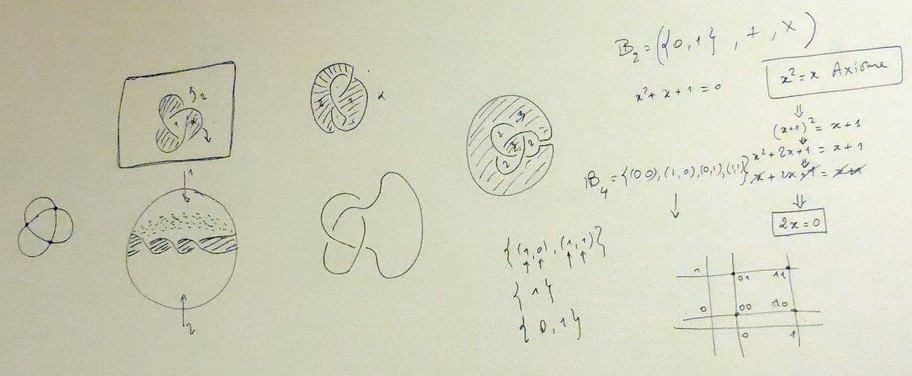 B₂ = ({0,1}, +, ×)
x² + x + 1 = 0
x² = x Axiome
⇓
(x+1)² = x+1
⇓
x² + 2x + 1 = x + 1
⇓
x + 2x + 1 = x + x
⇓
2x = 0
B₄ = {(00), (1,0), (0,1), (1,1)}
↓
{(1,0), (1,1)}
↑ ↑ ↑ ↑
{1}
{0,1}
1 01 11
0 00 10
0 1
2
1
2
α
2
2 2